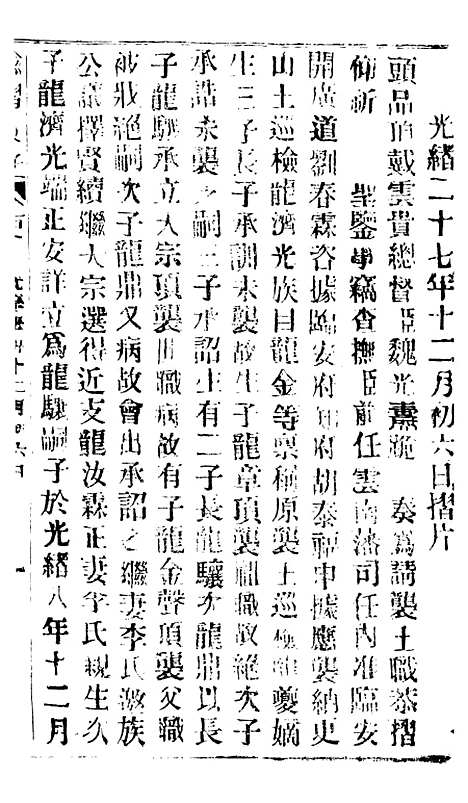 光緒二十七年十二月初六日摺片
頭品頂戴雲貴總督臣魏光燾跪 奏爲請襲土職恭摺
仰祈 聖鑒事竊查撫臣前任雲南藩司任內准臨安
開廣道劉春霖咨據臨安府知府胡泰福申據應襲納更
山土巡檢龍濟光族目龍金等稟稱原襲土巡檢龍夔嫡
生三子長子承訓未襲故生子龍章頂襲祖職故絕次子
承誥未襲乏嗣三子承詔生有二子長龍驤次龍鼎以長
子龍驤承立大宗頂襲世職病故有子龍金聲頂襲父職
被戕絕嗣次子龍鼎又病故會出承詔之繼妻李氏邀族
公議擇賢續繼大宗選得近支龍汝霖正妻李氏親生次
子龍濟光端正安詳立爲龍驤嗣子於光緒八年十二月